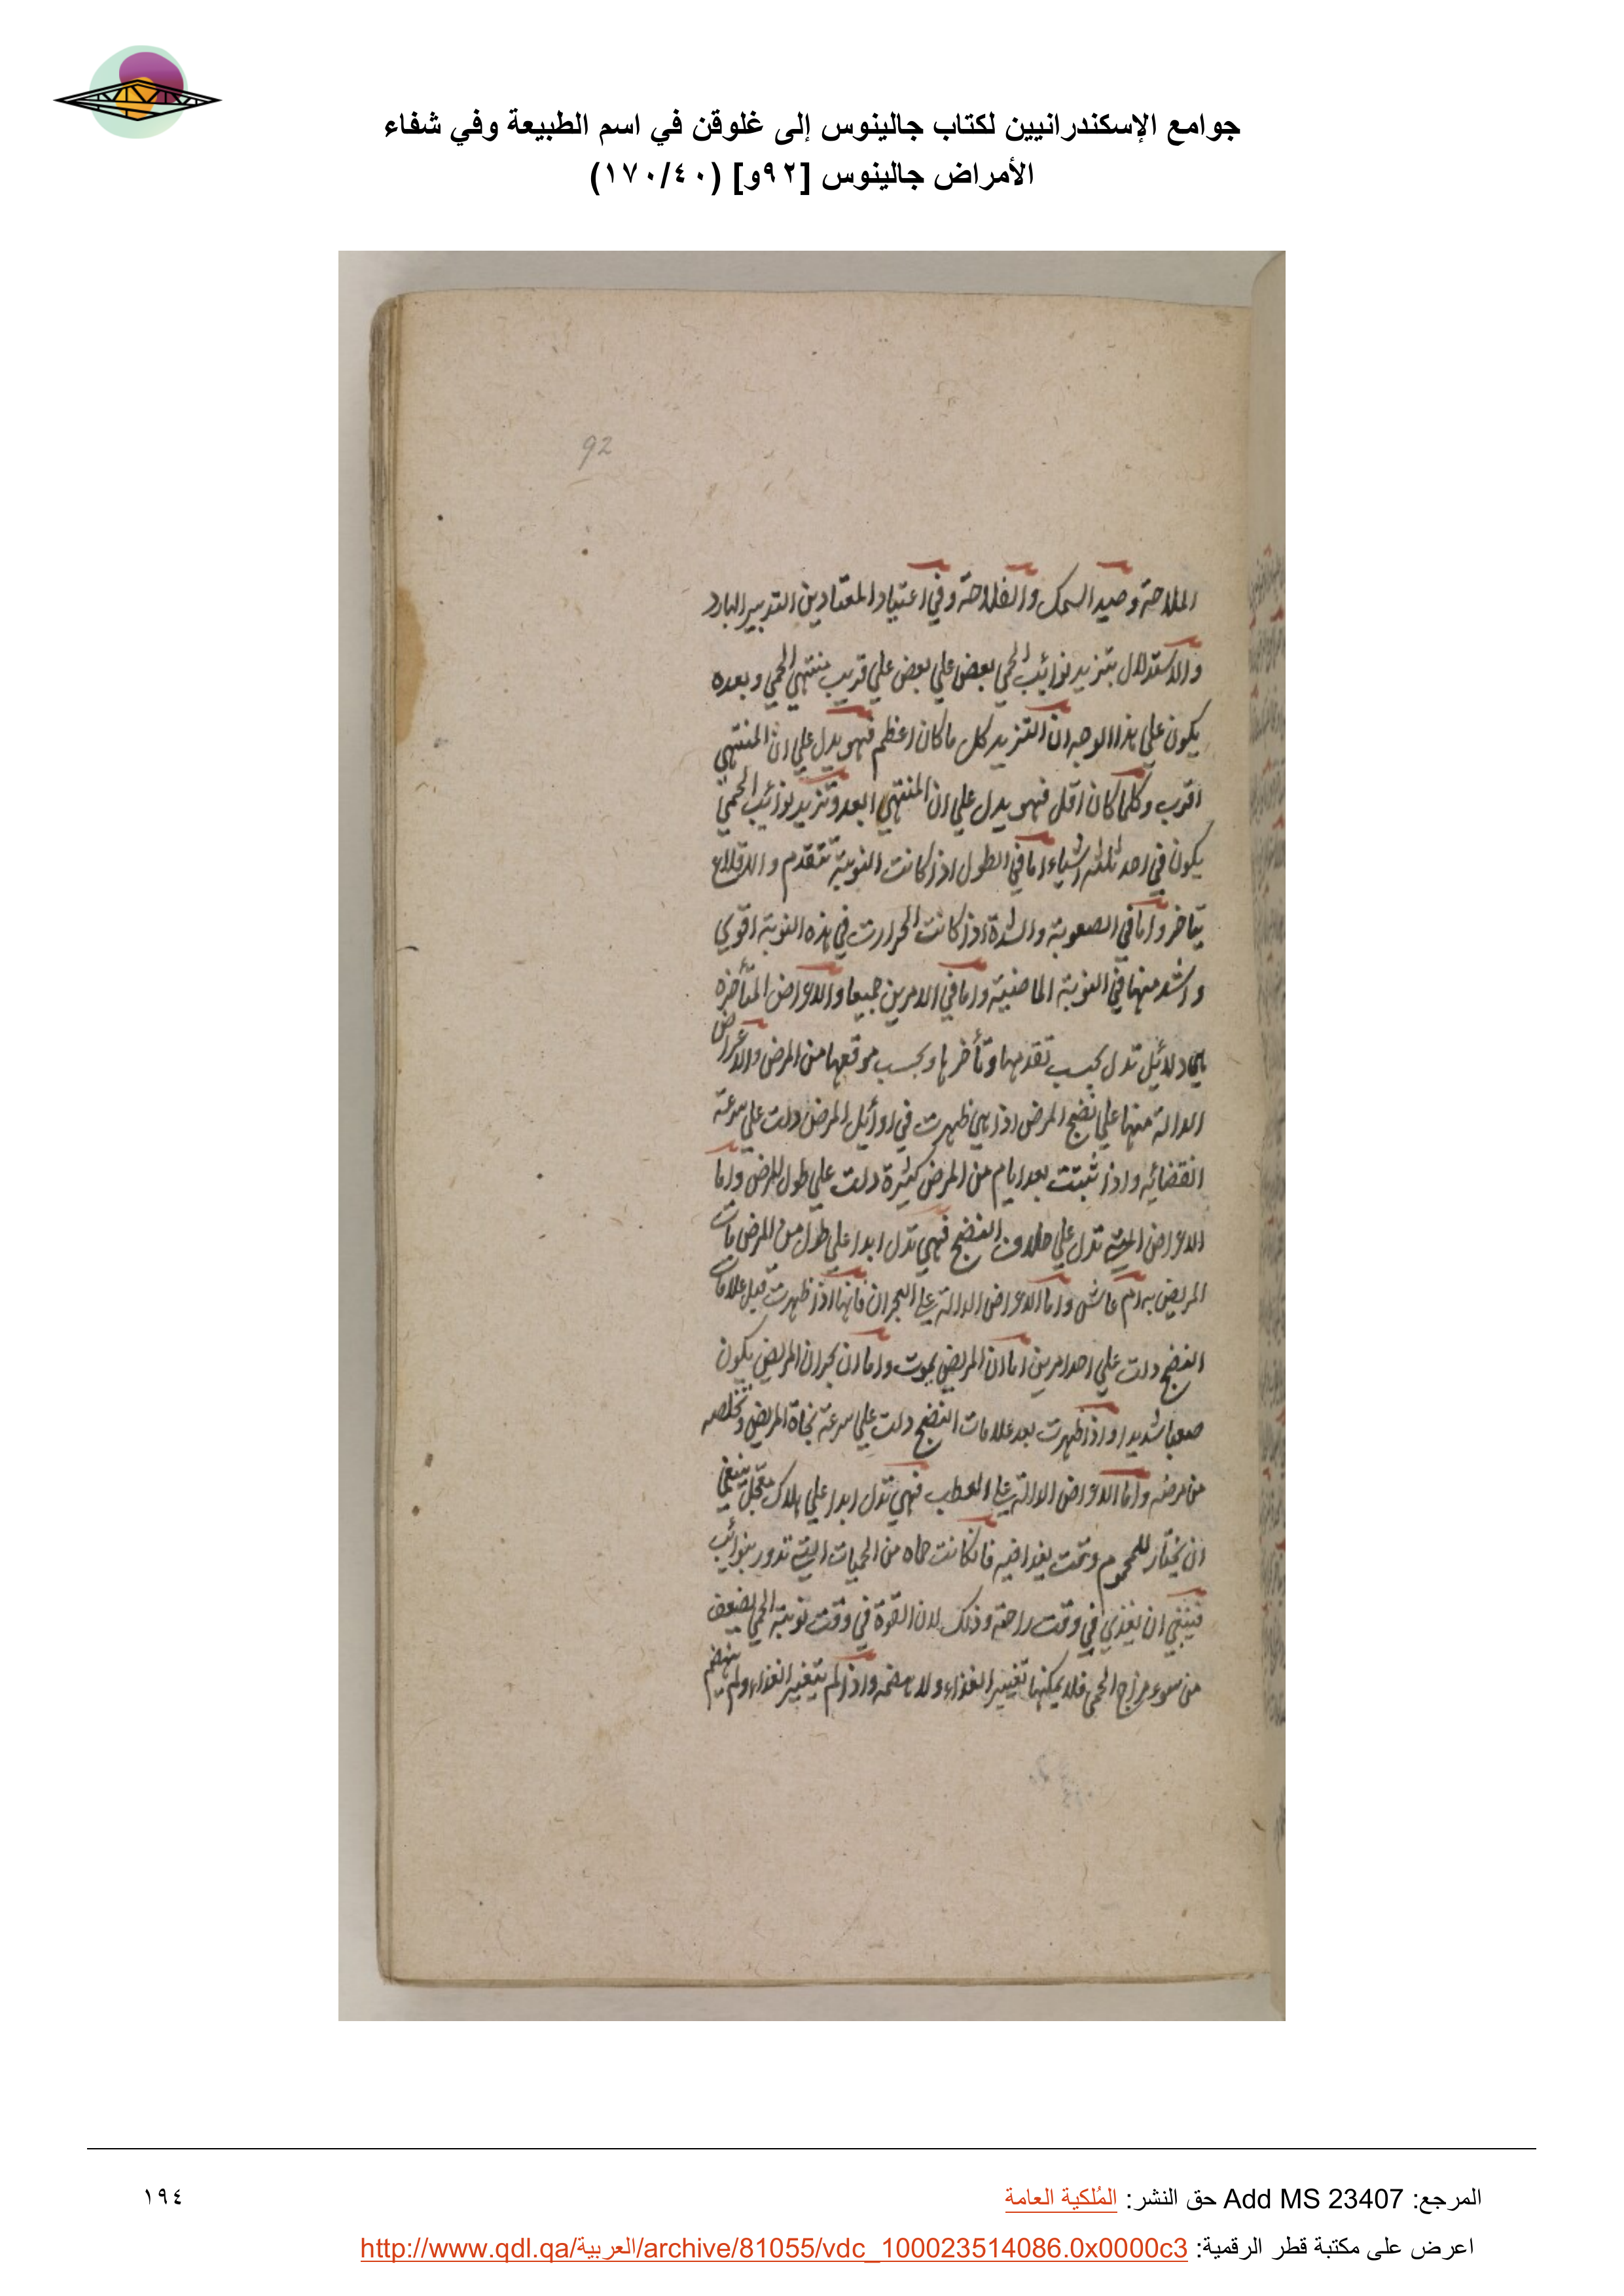 جوامع الإسكندرانيين لكتاب جالينوس إلى غلوقن في اسم الطبيعة وفي شفاء
الأمراض جالينوس [٩٢و] (١٧٠/٤٠)
92
الملاحة وصيد السمك والفلاحة وفي اعتياد المعتادين التدبير البارد
والاستدلال بتزيد نوائب الحمي بعض علي بعض علي قريب منتهي الحمي وبعده
يكون علي هذا الوجه ان التزيد كل ما كان اعظم فهو يدل علي ان المنتهي
اقرب وكلما كان اقل فهو يدل علي ان المنتهي ابعد وتزيد نوائب الحمي
يكون في احد ثلثه اشياء اما في الطول اذا كانت النوبة تتقدم والاقلاع
يتاخر واما في الصعوبة والشدة اذا كانت الحرارت في هذه النوبة اقوي
واشد منها في النوبة الماضية واما في الامرين جميعا والاعراض المتأخره
هي دلائل تدل بحسب تقدمها وتأخرها وبحسب موقعها من المرض والاعراض
الدالة منها علي نضج المرض اذا هي ظهرت في اوائل المرض دلت علي سرعة
انقضائه واذا ثبتت بعد ايام من المرض كثيرة دلت علي طول المرض واما
الاعراض التي تدل علي خلاف النضج فهي تدل ابدا علي طول من المرض مات
المريض به ام عاش واما الاعراض الدالة علي البحران فانها اذا ظهرت قبل علامات
النضج دلت علي احد امرين اما ان المريض يموت واما ان بحران المريض يكون
صعبا شديدا واذا ظهرت بعد علامات النضج دلت علي سرعة نجاة المريض وتخلصه
من مرضه واما الاعراض الدالة علي العطب فهي تدل ابدا علي هلاك معجل ينبغي
ان يختار للمحموم وقت يغدا فيه فان كانت حماه من الحميات التي تدور بنوائب
فينبغي ان يغذي في وقت راحته وذلك لان القوة في وقت نوبة الحمي تضعف
من سوء مزاج الحمي فلا يمكنها تغيير الغذاء ولا هضمه واذا لم يتغير الغذاء ولم ينهضم
المرجع: Add MS 23407 حق النشر: المُلكية العامة
١٩٤
اعرض على مكتبة قطر الرقمية: http://www.qdl.qa/العربية/archive/81055/vdc_100023514086.0x0000c3